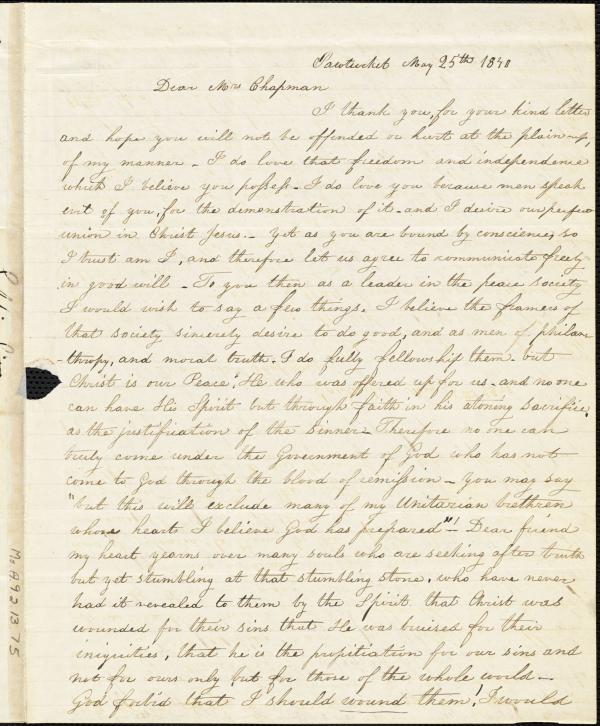 Pawtucket May 25th 1840
Dear Mrs Chapman
I thank you, for your kind letter
and hope you will not be offended or hurt at the plainness,
of my manner - I do love that freedom and independence
which I believe you possess - I do love you because men speak
evil of you, for the demonstration of it - and I desire our perfect
union in Christ Jesus. - Yet as you are bound by conscience, so
I trust am I, and therefore let us agree to communicate freely
in good will - To you then as a leader in the peace society
I would wish to say a few things. I believe the framers of
that society sincerely desire to do good, and as men of philan
thropy, and moral truth. I do fully fellowship them. but
"Christ is our Peace". He who was offered up for us - and no one
can have His Spirit but through faith in his atoning sacrifice,
as the justification of the sinner - Therefore no one can
truly come under the Government of God who has not
come to God through the blood of remission - You may say
"but this will exclude many of my Unitarian brethren
whose hearts I believe God has prepared"! - Dear friend
my heart yearns over many souls who are seeking after truth
but yet stumbling at that stumbling stone, who have never
had it revealed to them by the Spirit that Christ was
wounded for their sins that He was bruised for their
iniquities, that he is the propitiation for our sins and
not for ours only but for those of the whole world -
God forbid that I should wound them! I would
Ms.A.9.2.13.75